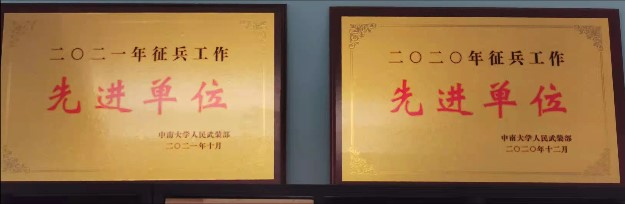 二〇二一年征兵工作
先进单位
中南大学人民武装部
二〇二一年十月
二〇二〇年征兵工作
先进单位
中南大学人民武装部
二〇二〇年十二月